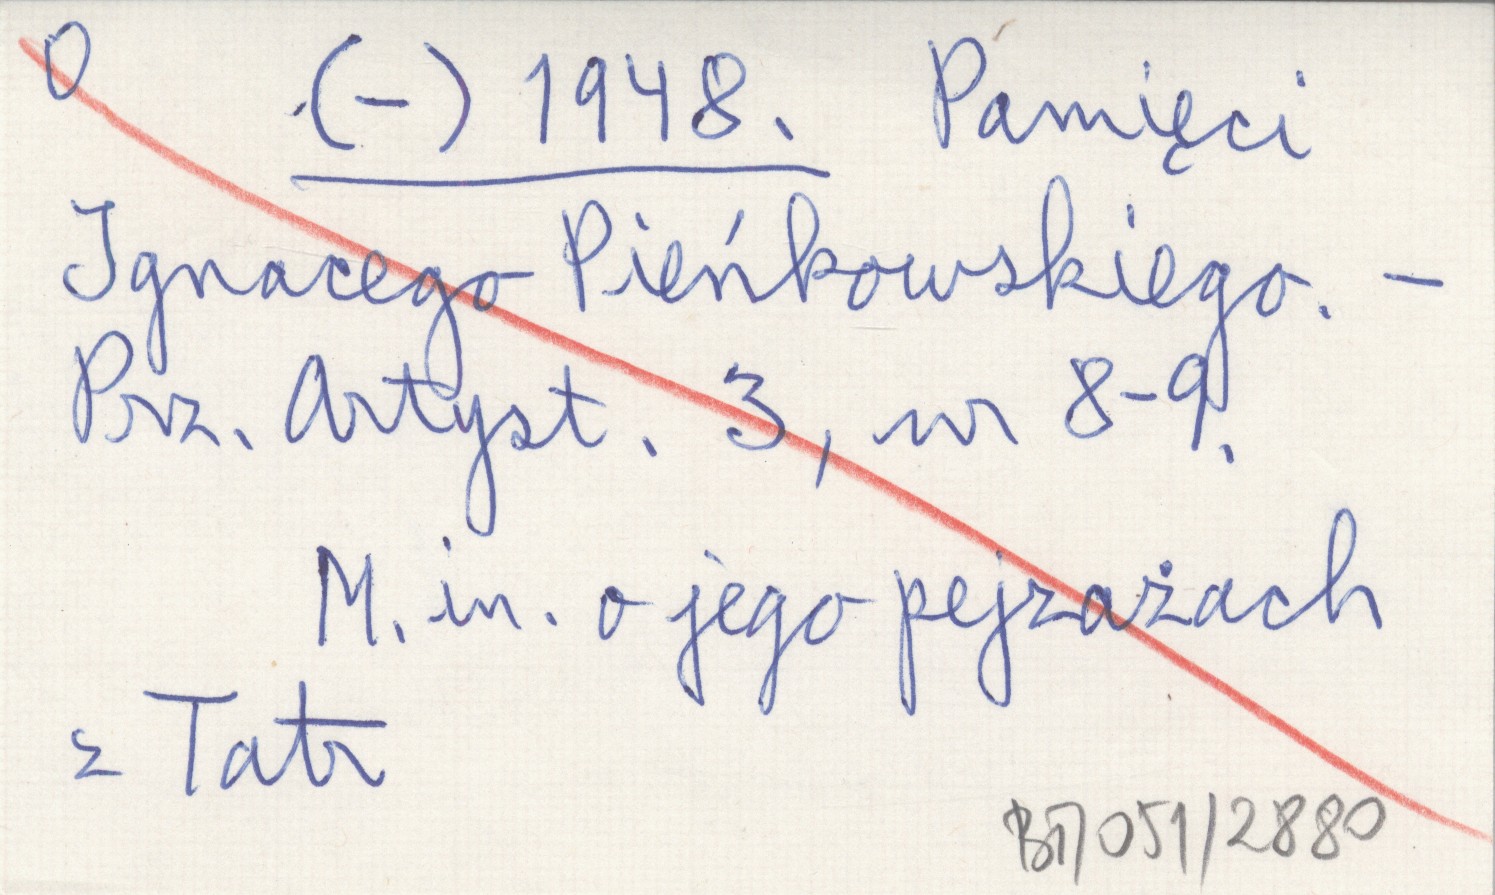 O (-) 1948. Pamięci
Ignacego Pieńkowskiego. -
Prz. Artyst. 3, nr 8-9.
M. in. o jego pejzażach
z Tatr
BT/051/2880